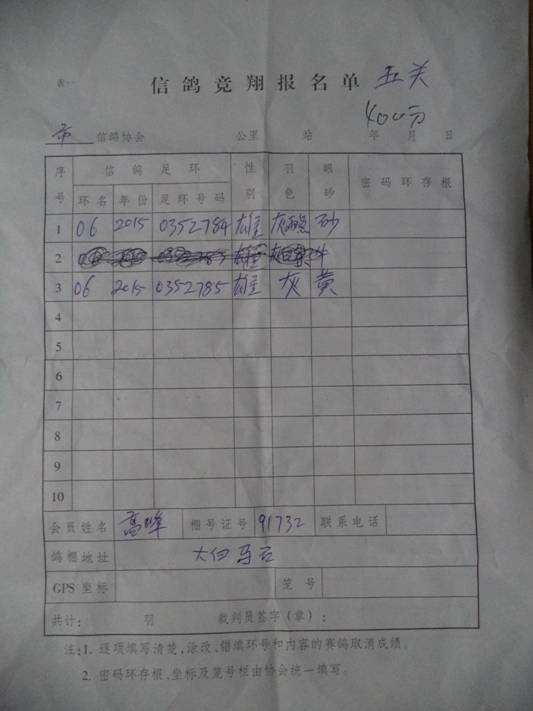 表一
信鸽竞翔报名单 五关
400方
市 信鸽协会 公里 站 年 月 日
序号 信鸽足环 性别 羽色 眼砂 密码环存根
环名 年份 足环号码
1 06 2015 0352784 雄 灰 砂
2
3 06 2015 0352785 雄 灰 黄
4
5
6
7
8
9
10
会员姓名 高峰 棚号证号 91732 联系电话
鸽棚地址 大白马石
GPS坐标 笼号
共计: 羽 裁判员签字(章):
注:1. 逐项填写清楚,涂改、错填环号和内容的赛鸽取消成绩。
2. 密码环存根、坐标及笼号栏由协会统一填写。